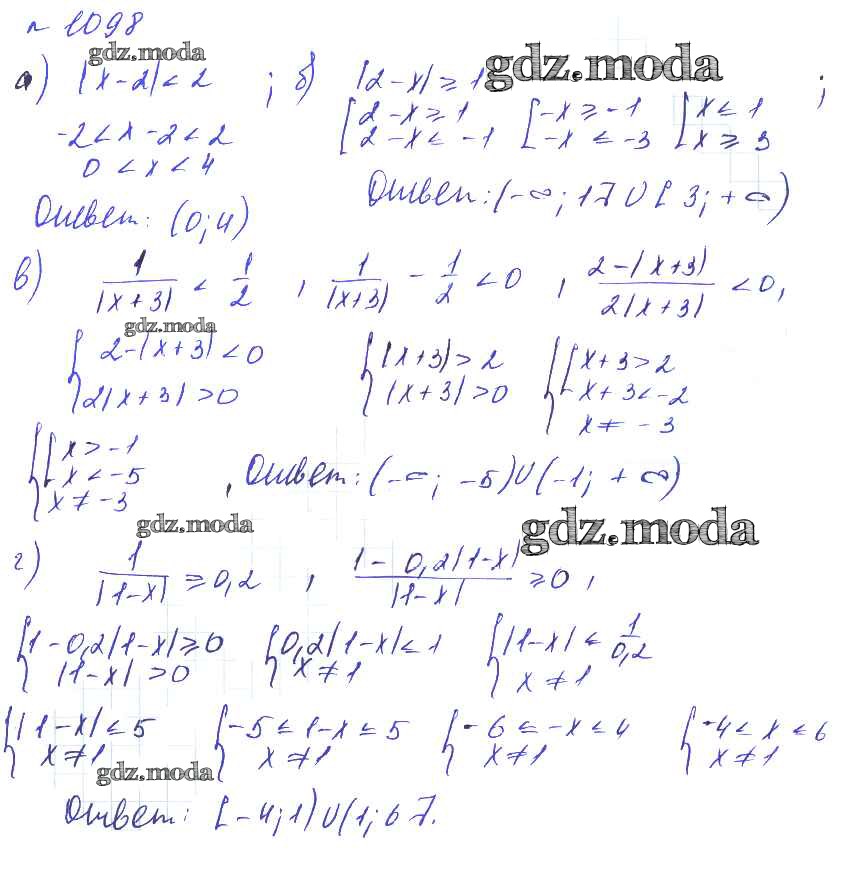 № 1098
gdz.moda
а) |x-2| < 2 ; б) |2-x| ≥ 1 gdz.moda ;
-2 < x-2 < 2 [2-x ≥ 1 2-x ≤ -1 [-x ≥ -1 -x ≤ -3 [x ≤ 1 x ≥ 3
0 < x < 4
Ответ: (0;4) Ответ: (-∞; 1] ∪ [3; +∞)
в) 1/|x+3| < 1/2 , 1/|x+3| - 1/2 < 0 , (2-|x+3|)/(2|x+3|) < 0,
gdz.moda
{2-|x+3| < 0 2|x+3| > 0 {|x+3| > 2 |x+3| > 0 {[x+3 > 2 x+3 < -2 x ≠ -3
{[x > -1 x < -5 x ≠ -3 , Ответ: (-∞; -5) ∪ (-1; +∞)
gdz.moda gdz.moda
г) 1/|1-x| ≥ 0,2 , (1-0,2|1-x|)/|1-x| ≥ 0 ,
{1-0,2|1-x| ≥ 0 |1-x| > 0 {0,2|1-x| ≤ 1 x ≠ 1 {|1-x| ≤ 1/0,2 x ≠ 1
{|1-x| ≤ 5 x ≠ 1 {-5 ≤ 1-x ≤ 5 x ≠ 1 {-6 ≤ -x ≤ 4 x ≠ 1 {-4 ≤ x ≤ 6 x ≠ 1
gdz.moda
Ответ: [-4;1) ∪ (1;6].